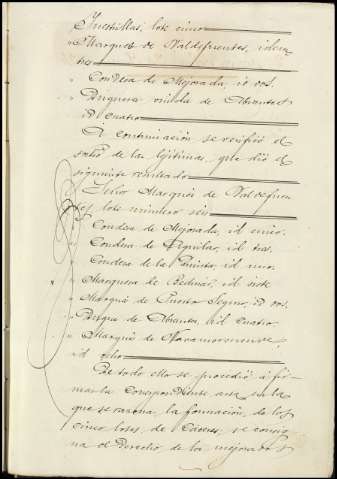 Inestrillas, lote cinco
" Marqués de Valdefuentes, idem
tres
" Condesa de Mejorada, id dos.
" Duquesa viuda de Abrantes
id cuatro
A continuación se verificó el
sorteo de las legítimas, que dió el
siguiente resultado
Señor Marqués de Valdefuen
tes lote número seis
" Condesa de Mejorada, id cinco.
" Condesa de Aguilar, id tres.
" Condesa de la id uno.
" Marquesa de Bedmar, id siete
" Marqués de Puerto Seguro, id dos.
" Duque de Abrantes, id cuatro
" Marqués de Navamorcuende
id ocho
De todo ello se procedió á fir-
mar la correspondiente acta en la
que se razona, la formación de los
cinco lotes, de Cáceres, se consig
na el Derecho de los mejorados